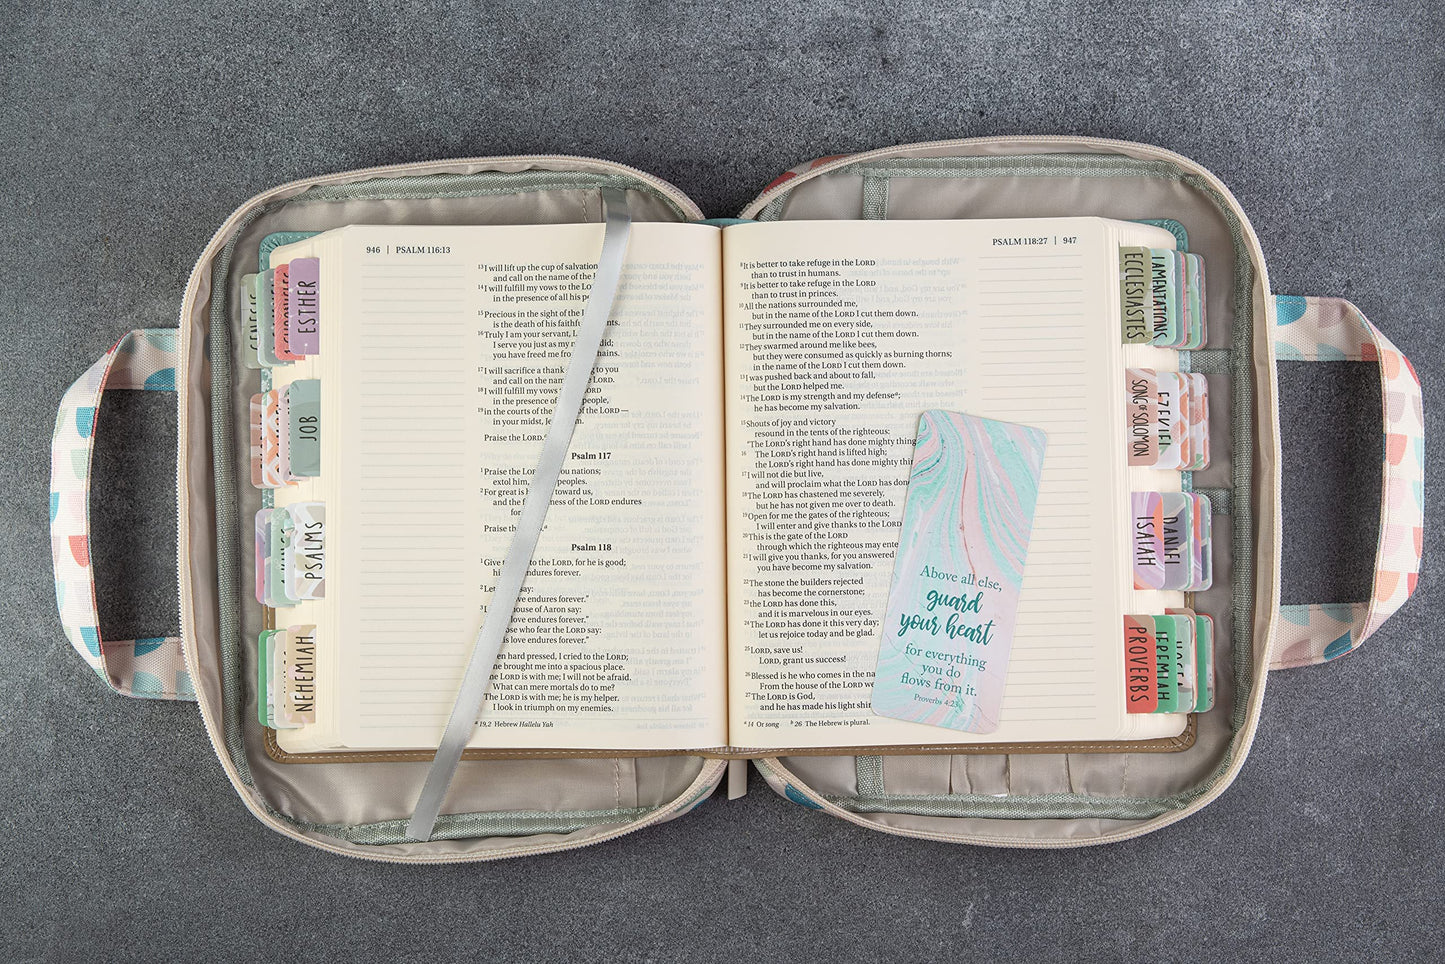 946 | PSALM 116:13
13 I will lift up the cup of salvation
and call on the name of the
14 I will fulfill my vows to the LORD
in the presence of all his
15 Precious in the sight of the
is the death of his faithful
16 Truly I am your servant,
I serve you just as my did;
you have freed me chains.
17 I will sacrifice a to you
and call on the name of the LORD.
18 I will fulfill my vows LORD
in the presence of people,
19 in the courts of the of the LORD —
in your midst,
Praise the LORD.
Psalm 117
1 Praise the nations;
extol him, peoples.
2 For great is toward us,
and the of the LORD endures
Praise the
Psalm 118
1 Give to the LORD, for he is good;
endures forever.
2 say:
love endures forever."
3 house of Aaron say:
love endures forever."
who fear the LORD say:
love endures forever."
hard pressed, I cried to the LORD;
he brought me into a spacious place.
The LORD is with me; I will not be afraid.
What can mere mortals do to me?
The LORD is with me; he is my helper.
I look in triumph on my enemies.
a 19,2 Hebrew Hallelu Yah
PSALM 118:27 | 947
8 It is better to take refuge in the LORD
than to trust in humans.
9 It is better to take refuge in the LORD
than to trust in princes.
10 All the nations surrounded me,
but in the name of the LORD I cut them down.
11 They surrounded me on every side,
but in the name of the LORD I cut them down.
12 They swarmed around me like bees,
but they were consumed as quickly as burning thorns;
in the name of the LORD I cut them down.
13 I was pushed back and about to fall,
but the LORD helped me.
14 The LORD is my strength and my defense a;
he has become my salvation.
15 Shouts of joy and victory
resound in the tents of the righteous:
"The LORD's right hand has done mighty
16 The LORD's right hand is lifted high;
the LORD's right hand has done mighty
17 I will not die but live,
and will proclaim what the LORD has
18 The LORD has chastened me severely,
but he has not given me over to death.
19 Open for me the gates of the righteous;
I will enter and give thanks to the LORD
20 This is the gate of the LORD
through which the righteous may
21 I will give you thanks, for you answered
you have become my salvation.
22 The stone the builders rejected
has become the cornerstone;
23 the LORD has done this,
and it is marvelous in our eyes.
24 The LORD has done it this very day;
let us rejoice today and be glad.
25 LORD, save us!
LORD, grant us success!
26 Blessed is he who comes in the
From the house of the LORD we
27 The LORD is God,
and he has made his light
a 14 Or song b 26 The Hebrew is plural.
Above all else,
guard
your heart
for everything
you do
flows from it.
Proverbs 4:23
GENESIS
1 CHRONICLES
ESTHER
JOB
PSALMS
NEHEMIAH
ECCLESIASTES
LAMENTATIONS
SONG OF SOLOMON
EZEKIEL
ISAIAH
DANIEL
PROVERBS
JEREMIAH
HOSEA